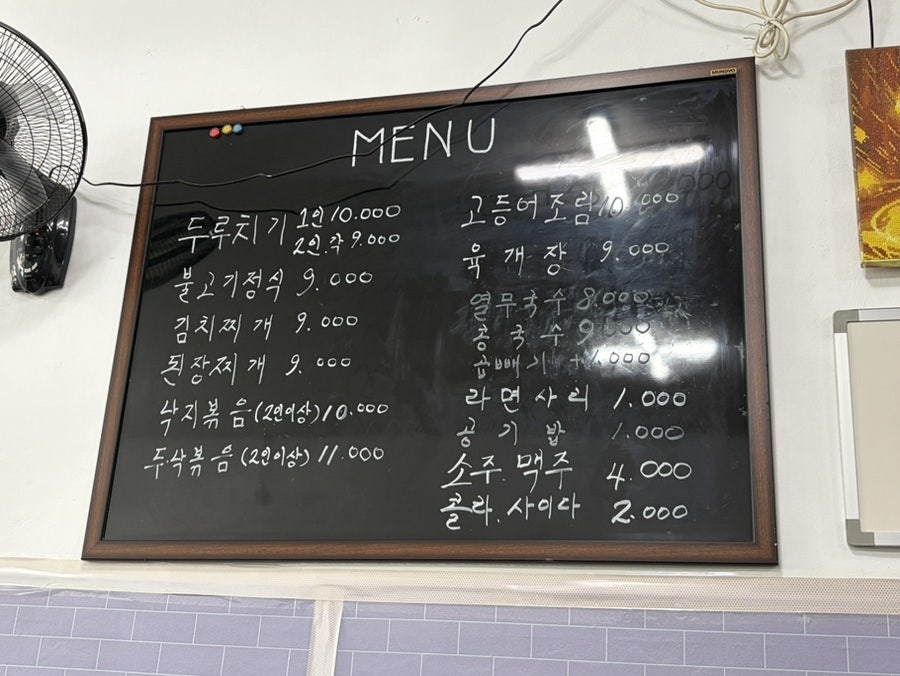 MUNGYO
MENU
두루치기 1인 10.000
2인.각 9.000
불고기정식 9.000
김치찌개 9.000
된장찌개 9.000
낙지볶음(2인이상)10.000
두낙볶음(2인이상) 11.000
고등어조림 10.000
육개장 9.000
열무국수 8.000
콩국수 9.000
곱빼기 +1.000
라면사리 1.000
공기밥 1.000
소주.맥주 4.000
콜라.사이다 2.000